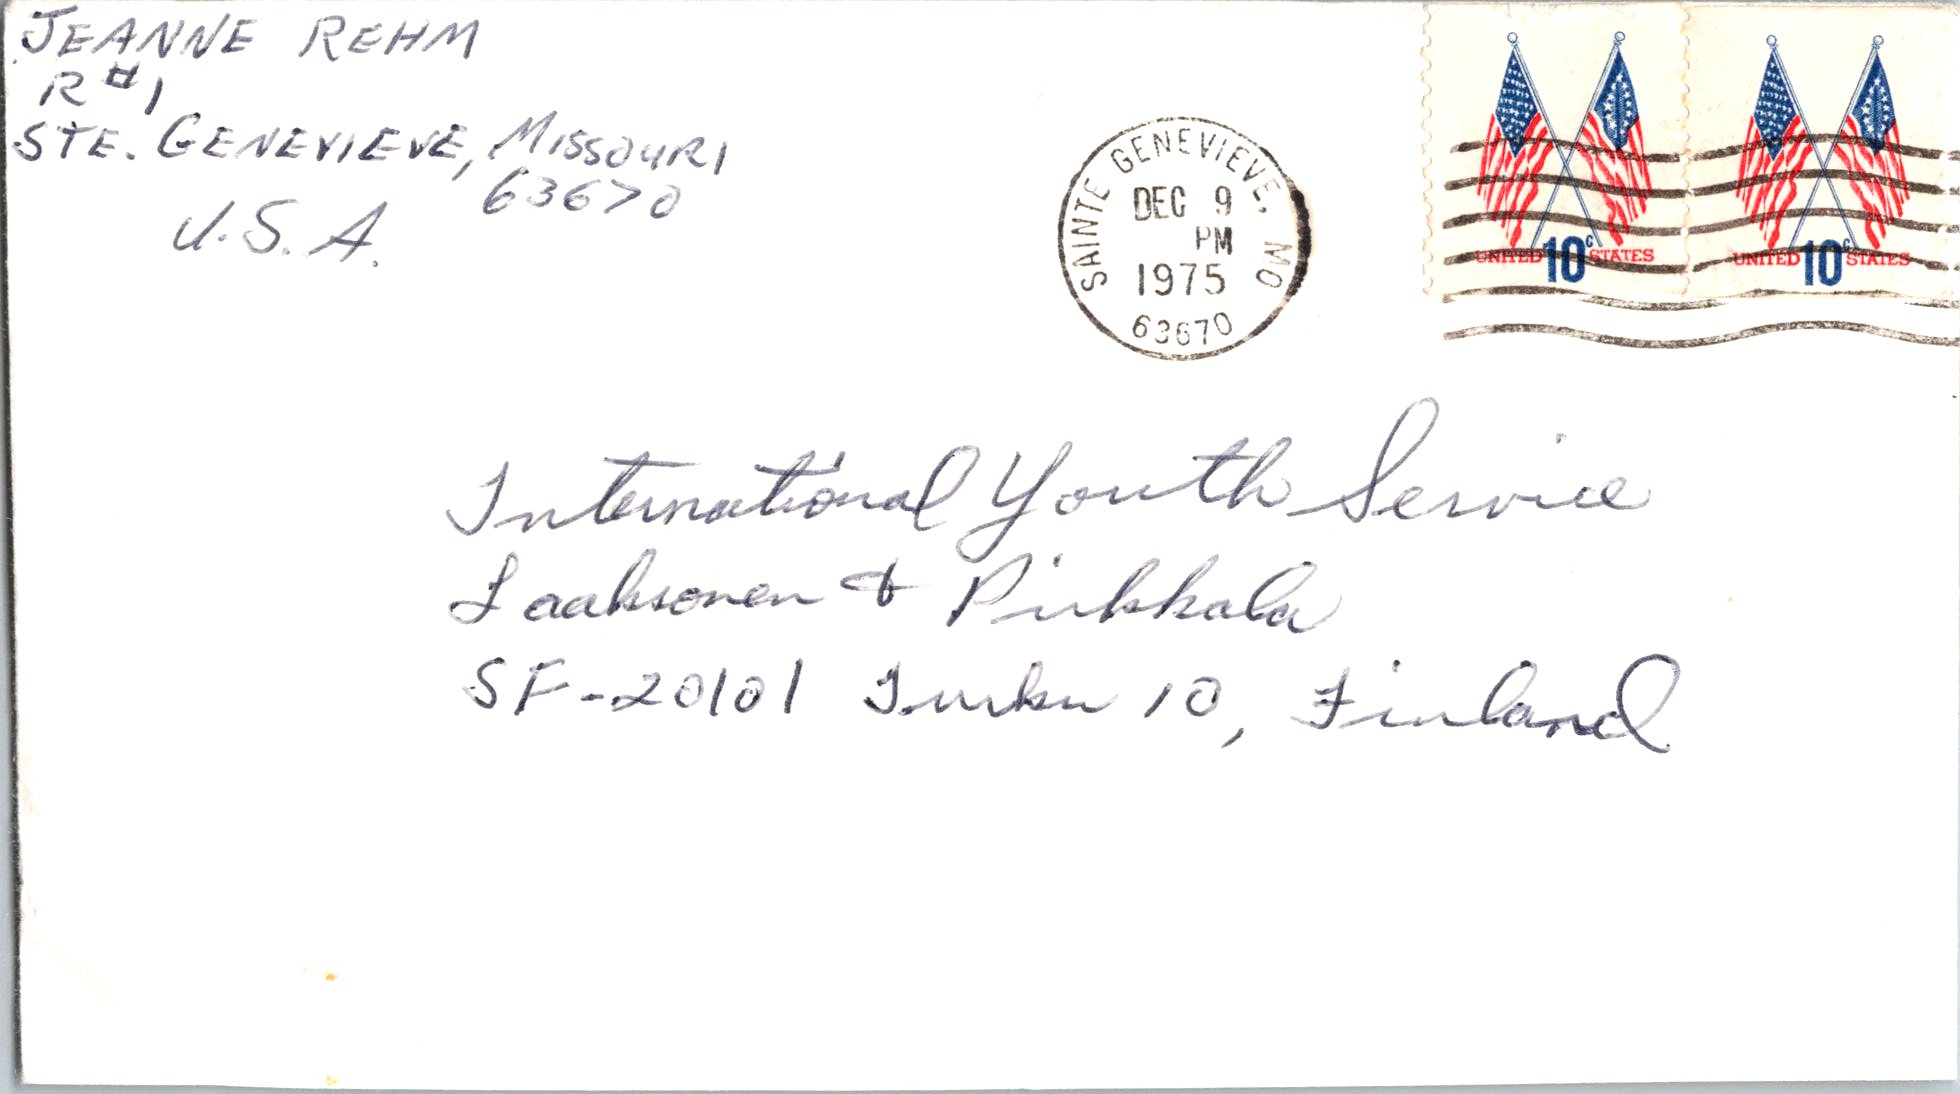 JEANNE REHM
R #1
STE. GENEVIEVE, MISSOURI
63670
U.S.A.
SAINTE GENEVIEVE, MO
DEC 9
PM
1975
63670
UNITED 10c STATES
UNITED 10c STATES
International Youth Service
Laaksonen & Pirkkala
SF-20101 Turku 10, Finland